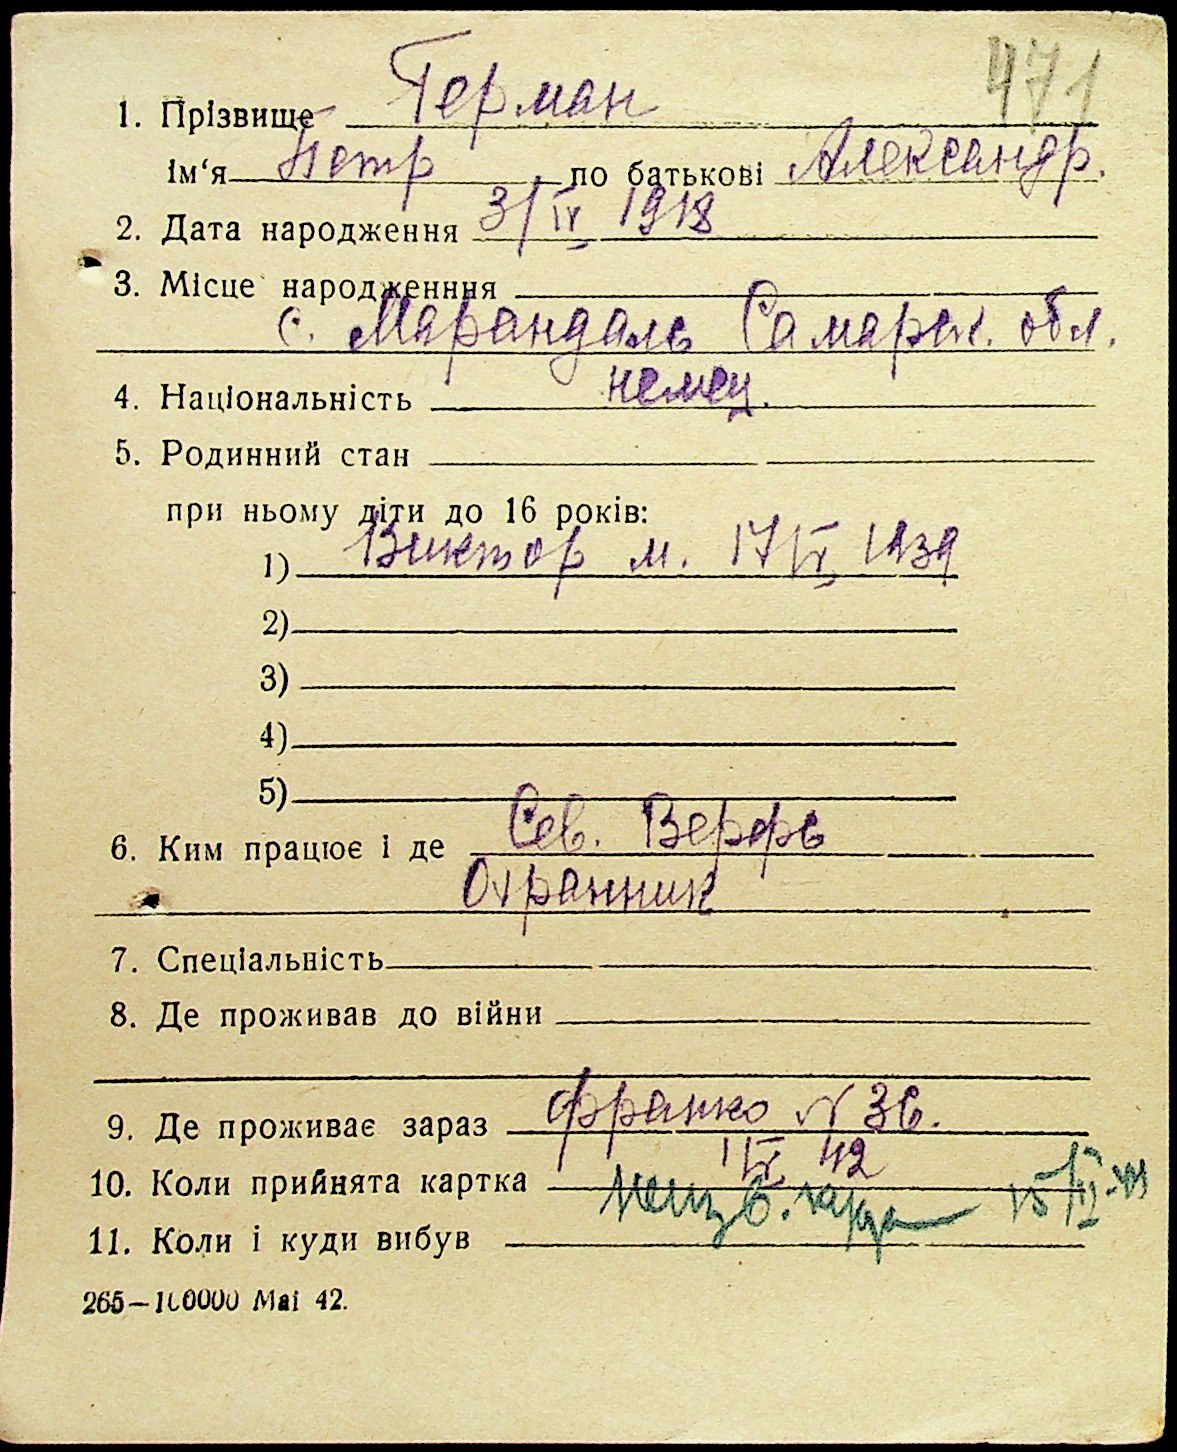 471
1. Прізвище Герман
Ім‘я Петр по батькові Александр.
2. Дата народження 3/IV 1918
3. Місце народженння
с. Мариандаль Самарск. обл.
4. Національність немец.
5. Родинний стан
при ньому діти до 16 років:
1) Виктор м. 17/IV 1939
2)
3)
4)
5)
6. Ким працює і де Сев. Верфь
Охранник
7. Спеціальність
8. Де проживав до війни
9. Де проживає зараз Франко № 36.
10. Коли прийнята картка 42
11. Коли і куди вибув
265—100000 Маі 42.